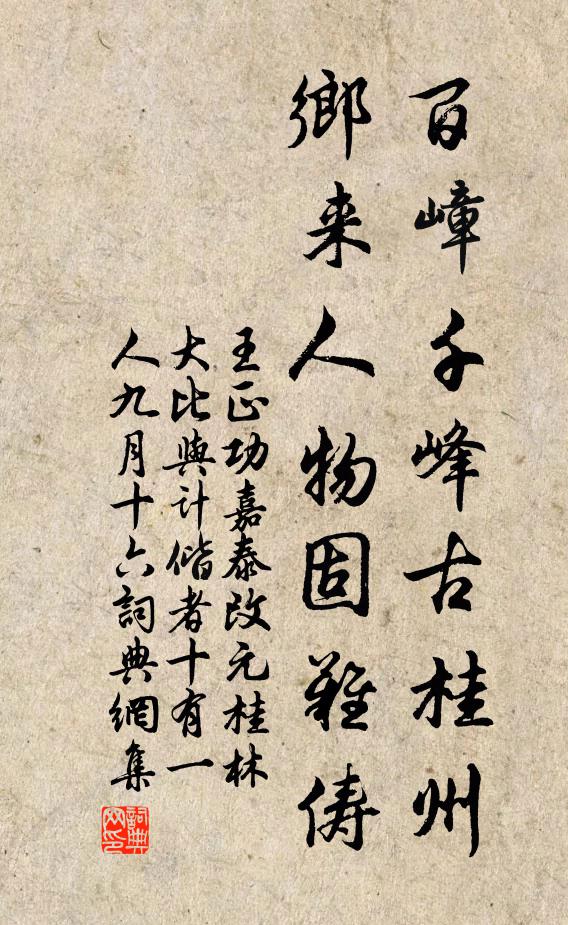 百嶂千峰古桂州
鄉来人物固難儔
王正功嘉泰改元桂林
大比與計偕者十有一
人九月十六詞典網集
詞典
网印